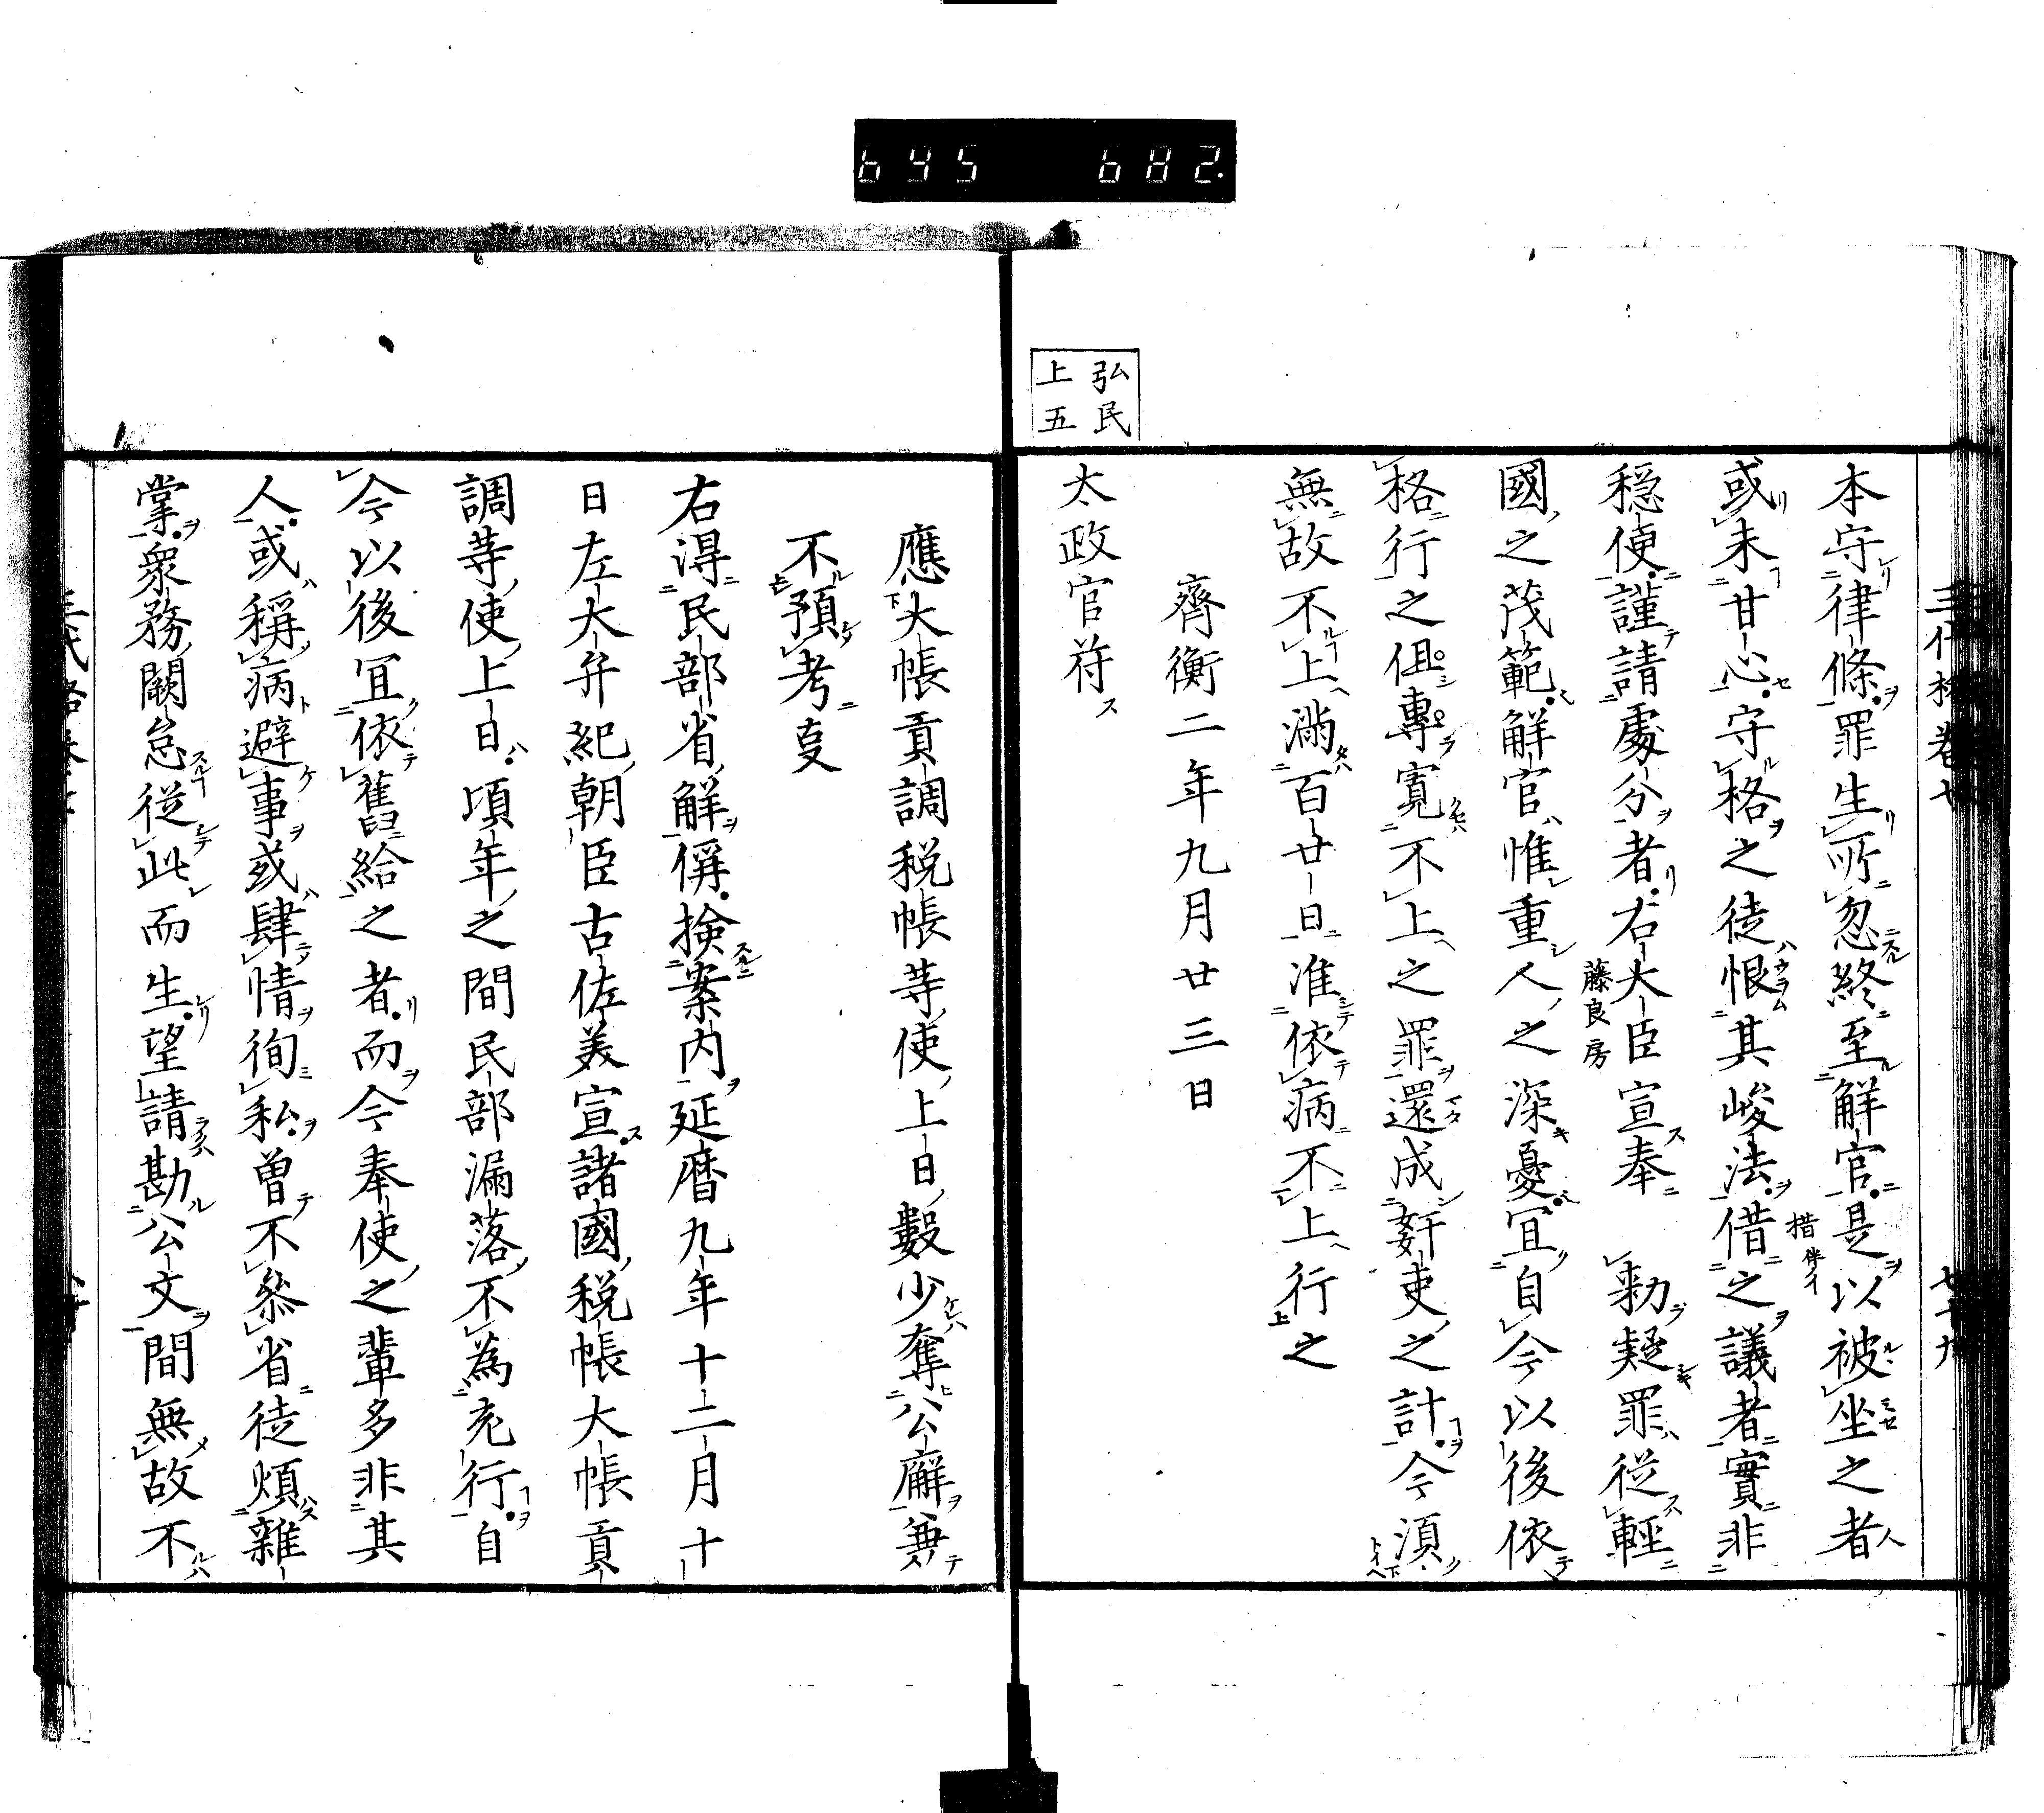 645 682
弘民
上五
本守律條罪生所忽終至解官是以被坐之者
或未甘心守格之徒恨其峻法借之議者實非
措
穏便謹請處分者右大臣宣奉 勅疑罪従輕
藤良房
國之茂範解官惟重人之深憂冝自今以後依
格行之但專寛不上之罪還成姧吏之計今須
無故不上満百廿日准依病不上行之
齊衡二年九月廿三日
太政官符
應大帳貢調税帳等使上日數少奪公廨兼
不預考事
右得民部省解偁撿案内延暦九年十二月十
日左大弁紀朝臣古佐美宣諸國税帳大帳貢
調等使上日頃年之間民部漏落不為充行自
今以後冝依舊給之者而今奉使之輩多非其
人或稱病避事或肆情徇私曽不參省徒煩雜
掌衆務闕怠従此而生望請勘公文間無故不